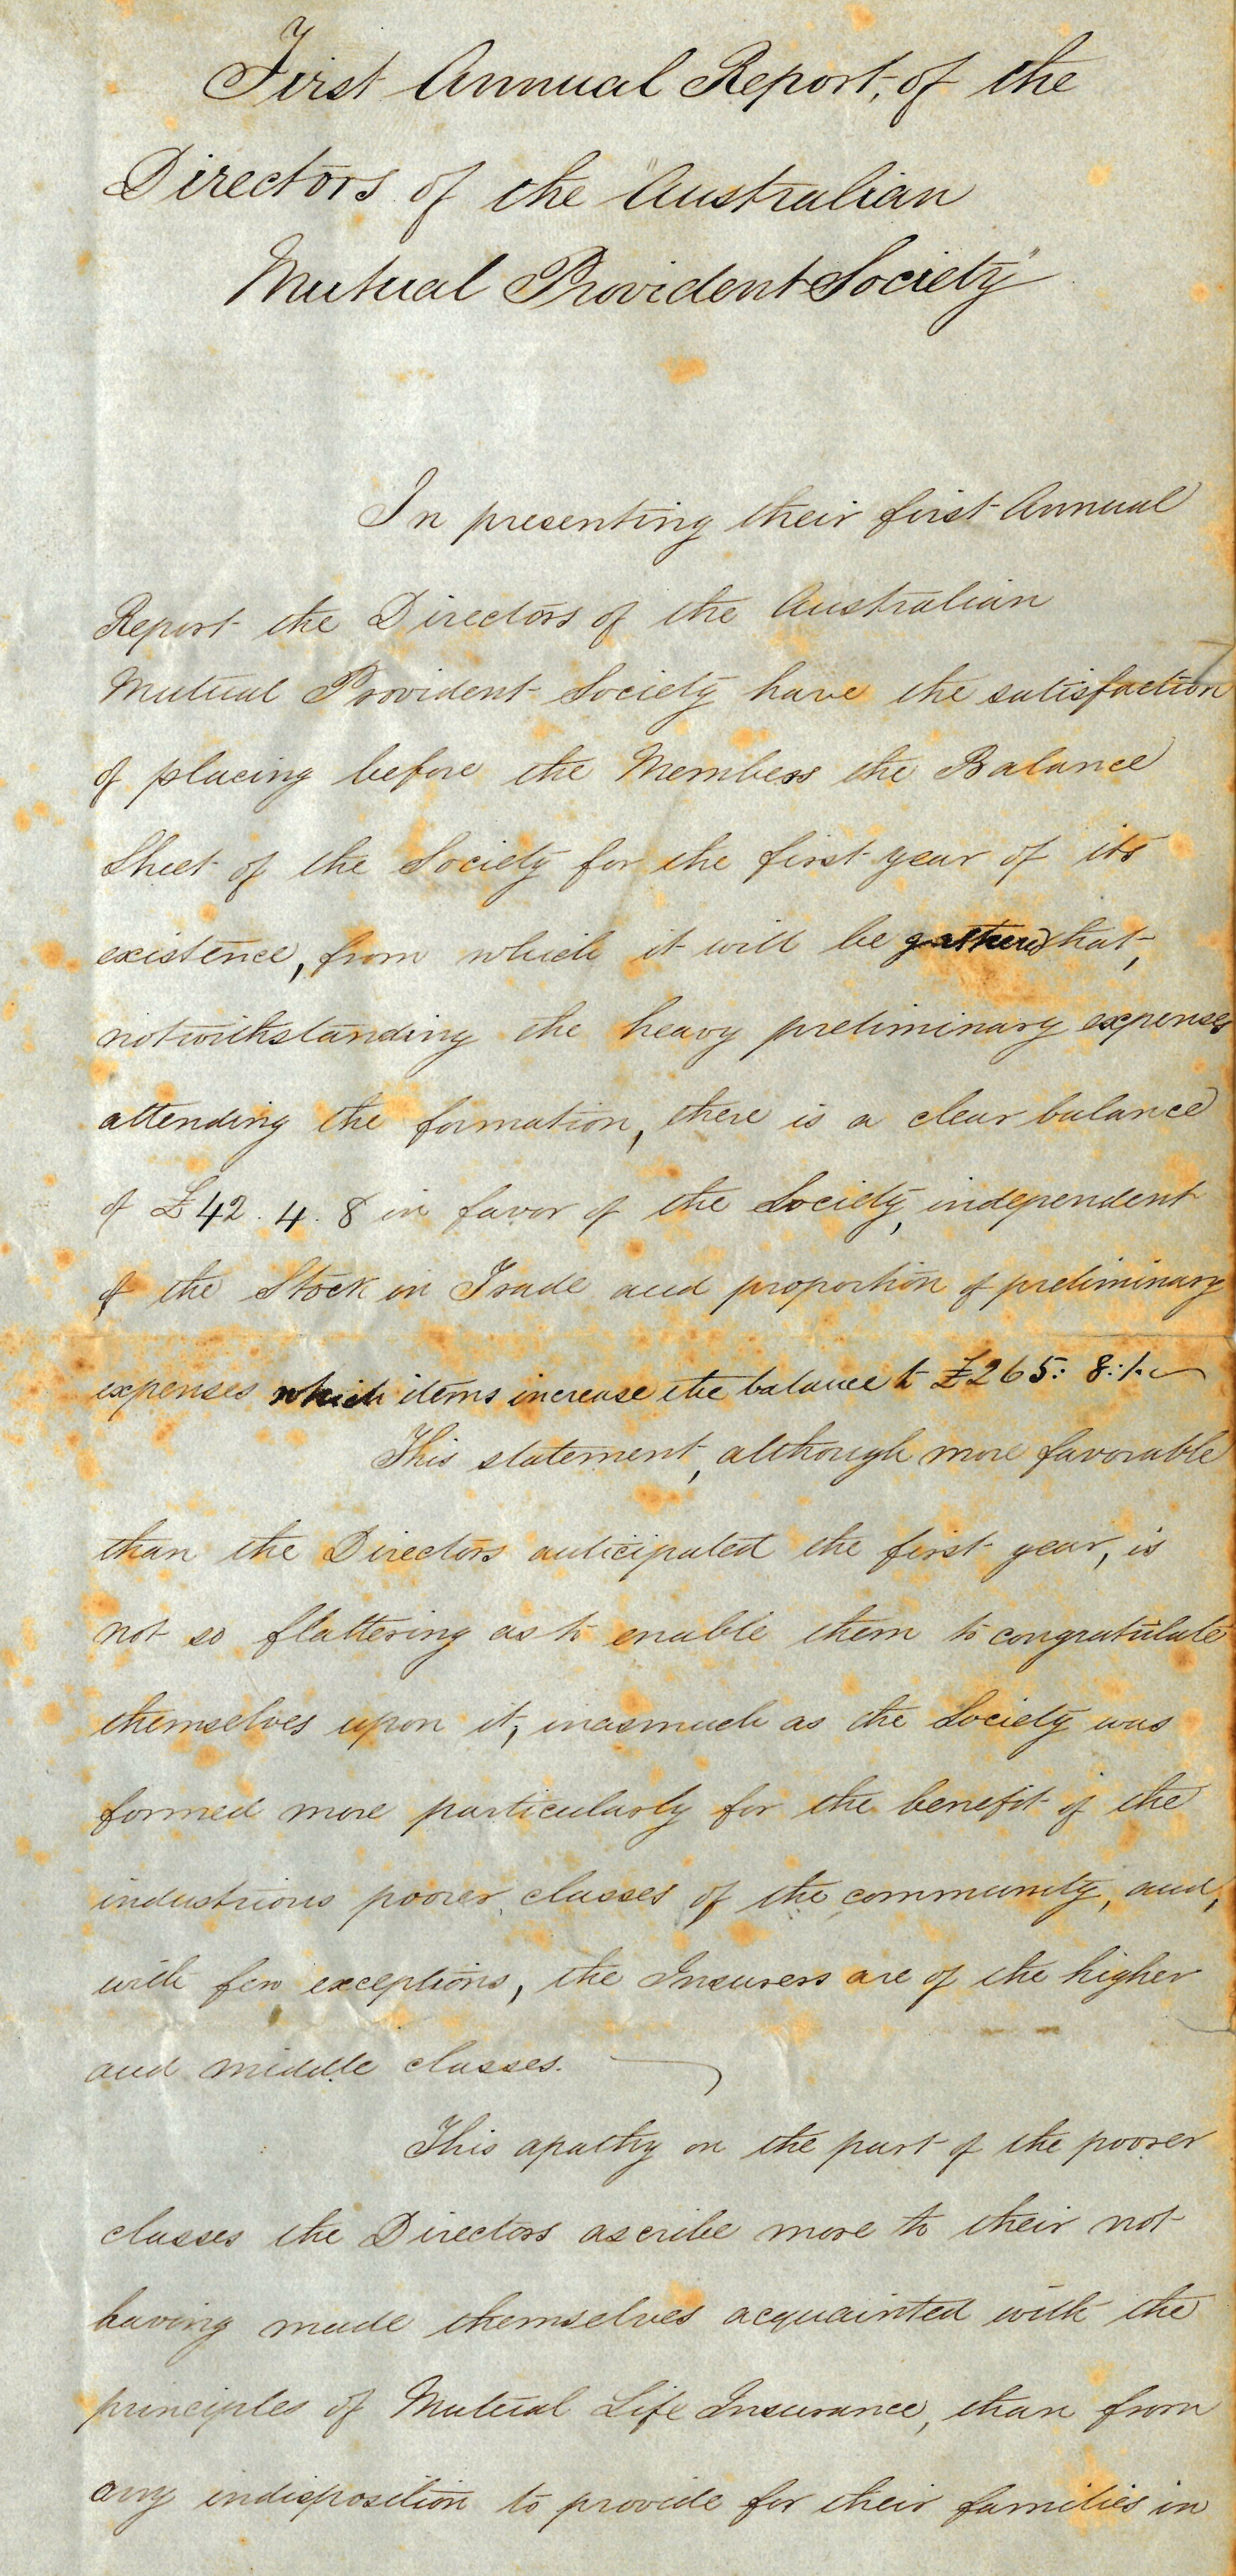 First Annual Report, of the
Directors of the "Australian
Mutual Provident Society"
In presenting their first Annual
Report the Directors of the Australian
Mutual Provident Society have the satisfaction
of placing before the Members the Balance
Sheet of the Society for the first year of its
existence, from which it will be gathered that,
notwithstanding the heavy preliminary expenses
attending the formation, there is a clear balance
of £42.4.8 in favor of the Society, independent
of the Stock in Trade and proportion of preliminary
expenses which items increase the balance to £265: 8: 1.
This statement, although more favorable
than the Directors anticipated the first year, is
not so flattering as to enable them to congratulate
themselves upon it, inasmuch as the Society was
formed more particularly for the benefit of the
industrious poorer classes of the community, and,
with few exceptions, the Insurers are of the higher
and middle classes.
This apathy on the part of the poorer
classes the Directors ascribe more to their not
having made themselves acquainted with the
principles of Mutual Life Insurance, than from
any indisposition to provide for their families in